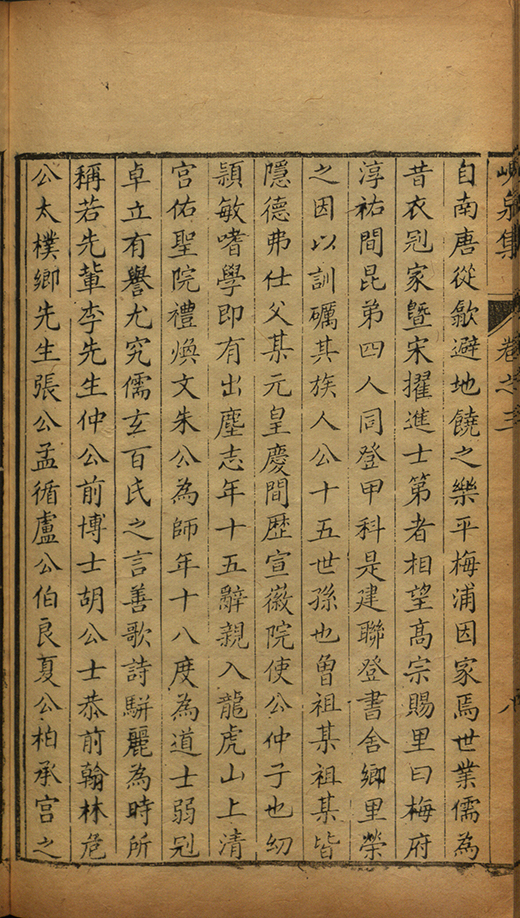 峴泉集 卷之二 八
自南唐從歙避地饒之樂平梅浦因家焉世業儒為
昔衣冠家暨宋擢進士第者相望高宗賜里曰梅府
淳祐間昆弟四人同登甲科是建聯登書舍鄉里榮
之因以訓礪其族人公十五世孫也曾祖某祖某皆
隱德弗仕父某元皇慶間歷宣徽院使公仲子也幼
穎敏嗜學即有出塵志年十五辭親入龍虎山上清
宮佑聖院禮煥文朱公為師年十八度為道士弱冠
卓立有譽尤究儒玄百氏之言善歌詩駢麗為時所
稱若先軰李先生仲公前博士胡公士恭前翰林危
公太樸鄉先生張公孟循盧公伯良夏公柏承宮之